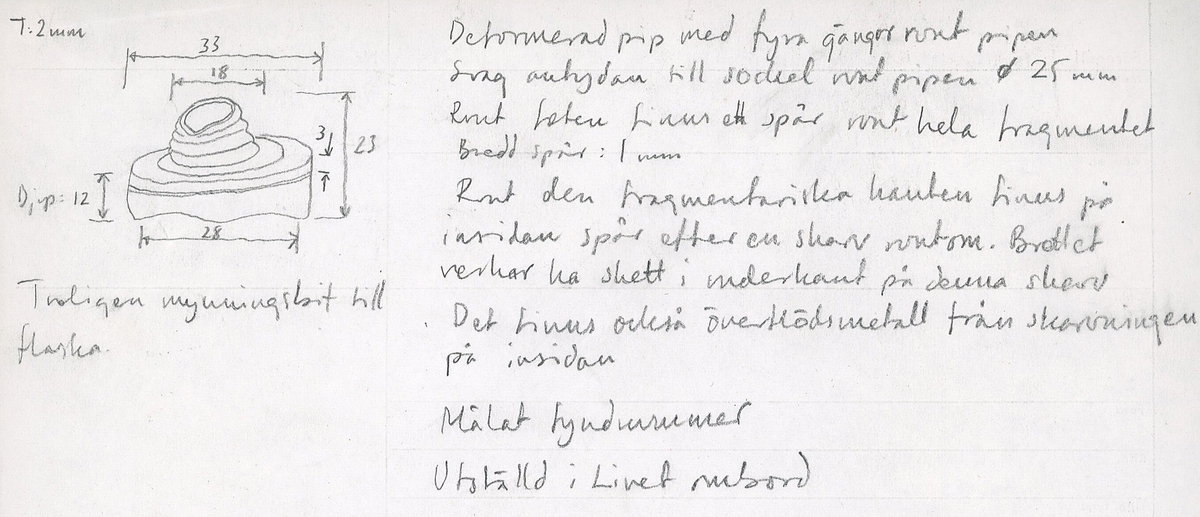 T: 2 mm
33
18
3
23
Djup: 12
28
Troligen mynningsbit till
flaska.
Deformerad pip med fyra gängor runt pipen
Svag antydan till sockel runt pipen ø 25 mm
Runt foten finns ett spår runt hela fragmentet
Bredd spår: 1 mm
Runt den fragmentariska kanten finns på
insidan spår efter en skarv runtom. Brottet
verkar ha skett i underkant på denna skarv
Det finns också överflödsmetall från skarvningen
på insidan
Målat fyndnummer
Utställd i Livet ombord